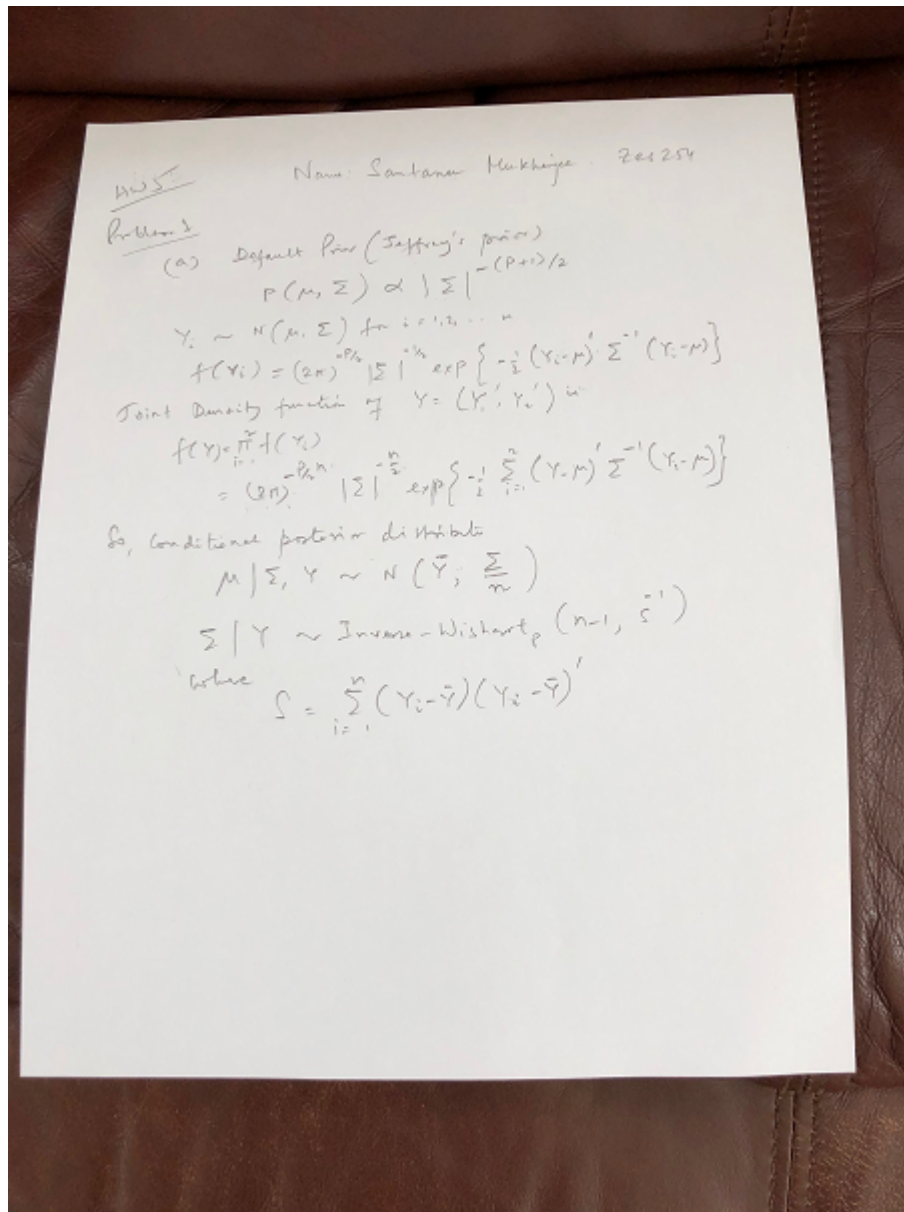 HW5 Name: Santanu Mukherjee. zes254
Problem 1
(a) Default Prior (Jeffrey's prior)
P(μ, Σ) ∝ |Σ|^-(P+1)/2
Y_i ~ N(μ, Σ) for i = 1,2, ... n
f(Y_i) = (2π)^-P/2 |Σ|^-1/2 exp{-1/2 (Y_i-μ)' Σ^-1 (Y_i-μ)}
Joint Density function of Y = (Y_1', Y_2') is
f(Y) = π_{i=1}^n f(Y_i)
= (2π)^-P/2 n |Σ|^-n/2 exp{-1/2 Σ_{i=1}^n (Y_i-μ)' Σ^-1 (Y_i-μ)}
So, conditional posterior distribute
μ | Σ, Y ~ N(Ȳ, Σ/n)
Σ | Y ~ Inverse-Wishart_p (n-1, S^-1)
where
S = Σ_{i=1}^n (Y_i-Ȳ)(Y_i-Ȳ)'